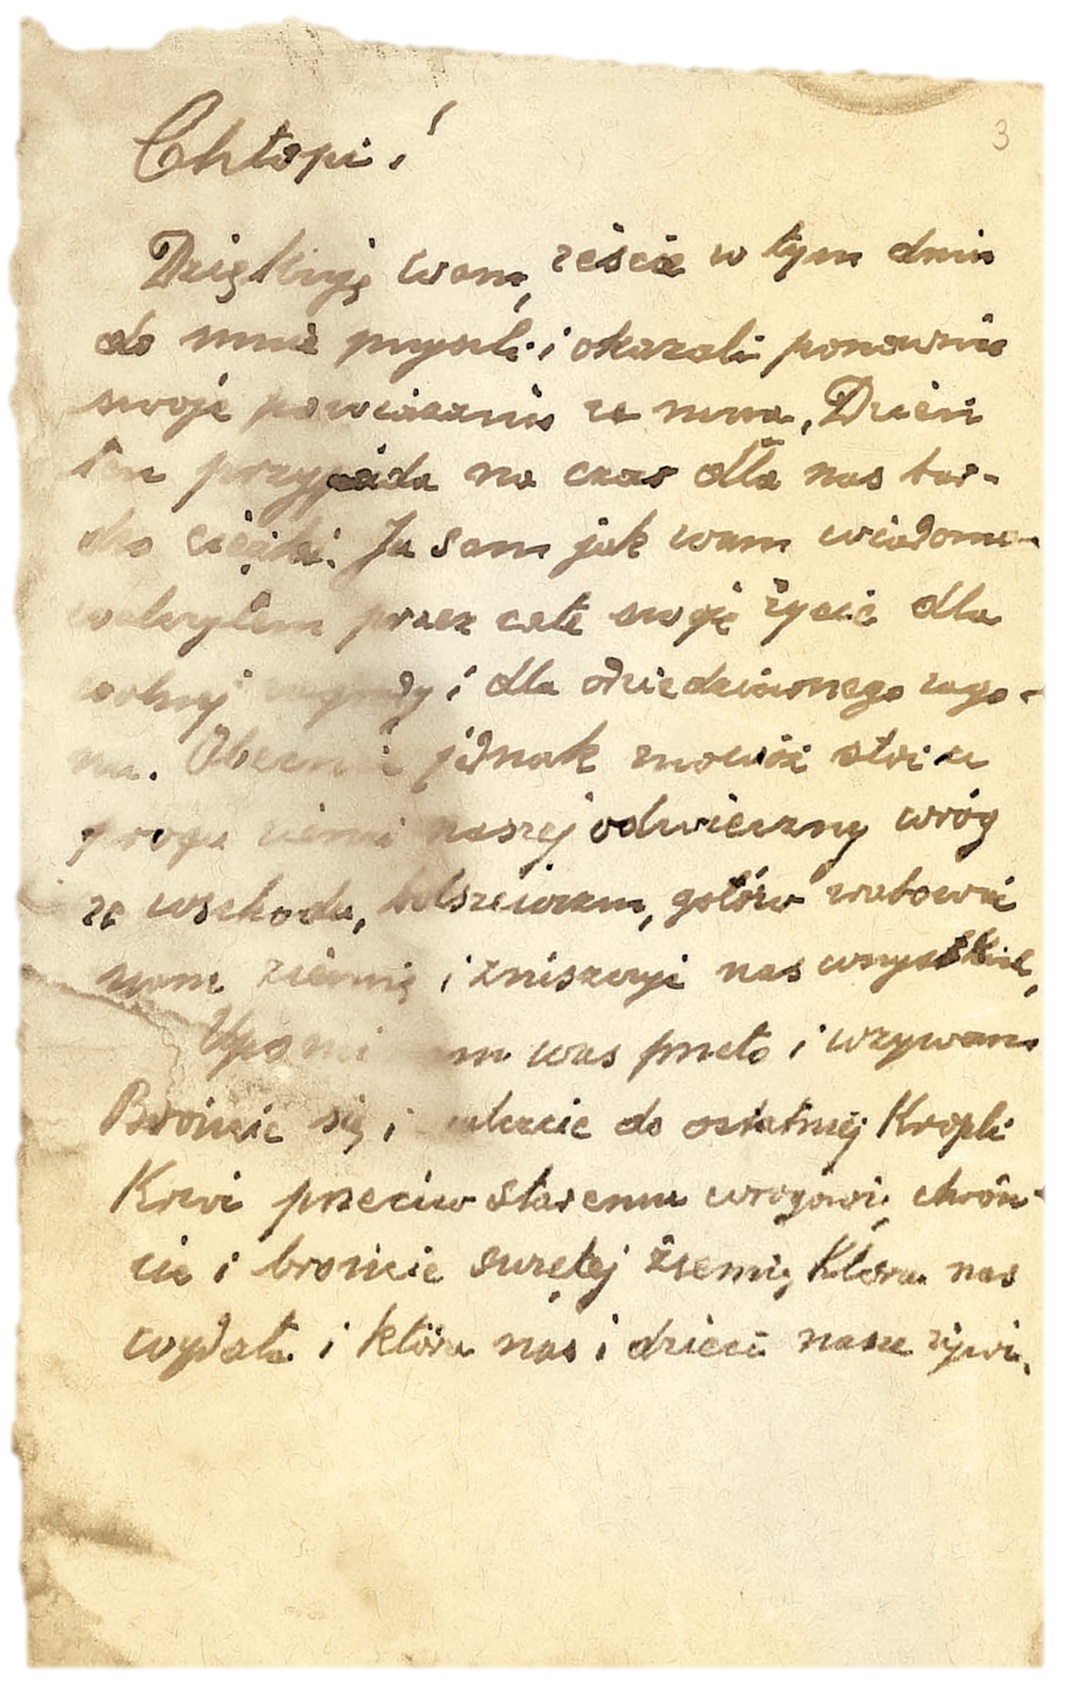 3
Chłopi!
Dziękuję wam, żeście w tym dniu
do mnie przyszli i okazali ponownie
swoje powiązanie ze mną. Dzień
ten przypada na czas dla nas bar-
dzo ciężki. Ja sam jak wam wiadomo
walczyłem przez całe swoje życie dla
wolnej i dla dziedzicznego zago-
nu. Obecnie jednak znowuż stoi u
progu ziemi naszej odwieczny wróg
ze wschodu, bolszewizm, gotów zrabować
nam ziemię i zniszczyć nas wszystkich,
was przeto i wzywam
Brońcie się i walczcie do ostatniej kropli
Krwi przeciw staremu wrogowi, chroń-
cie i brońcie świętej ziemi, która nas
wydała i która nas i dzieci nasze żywi.